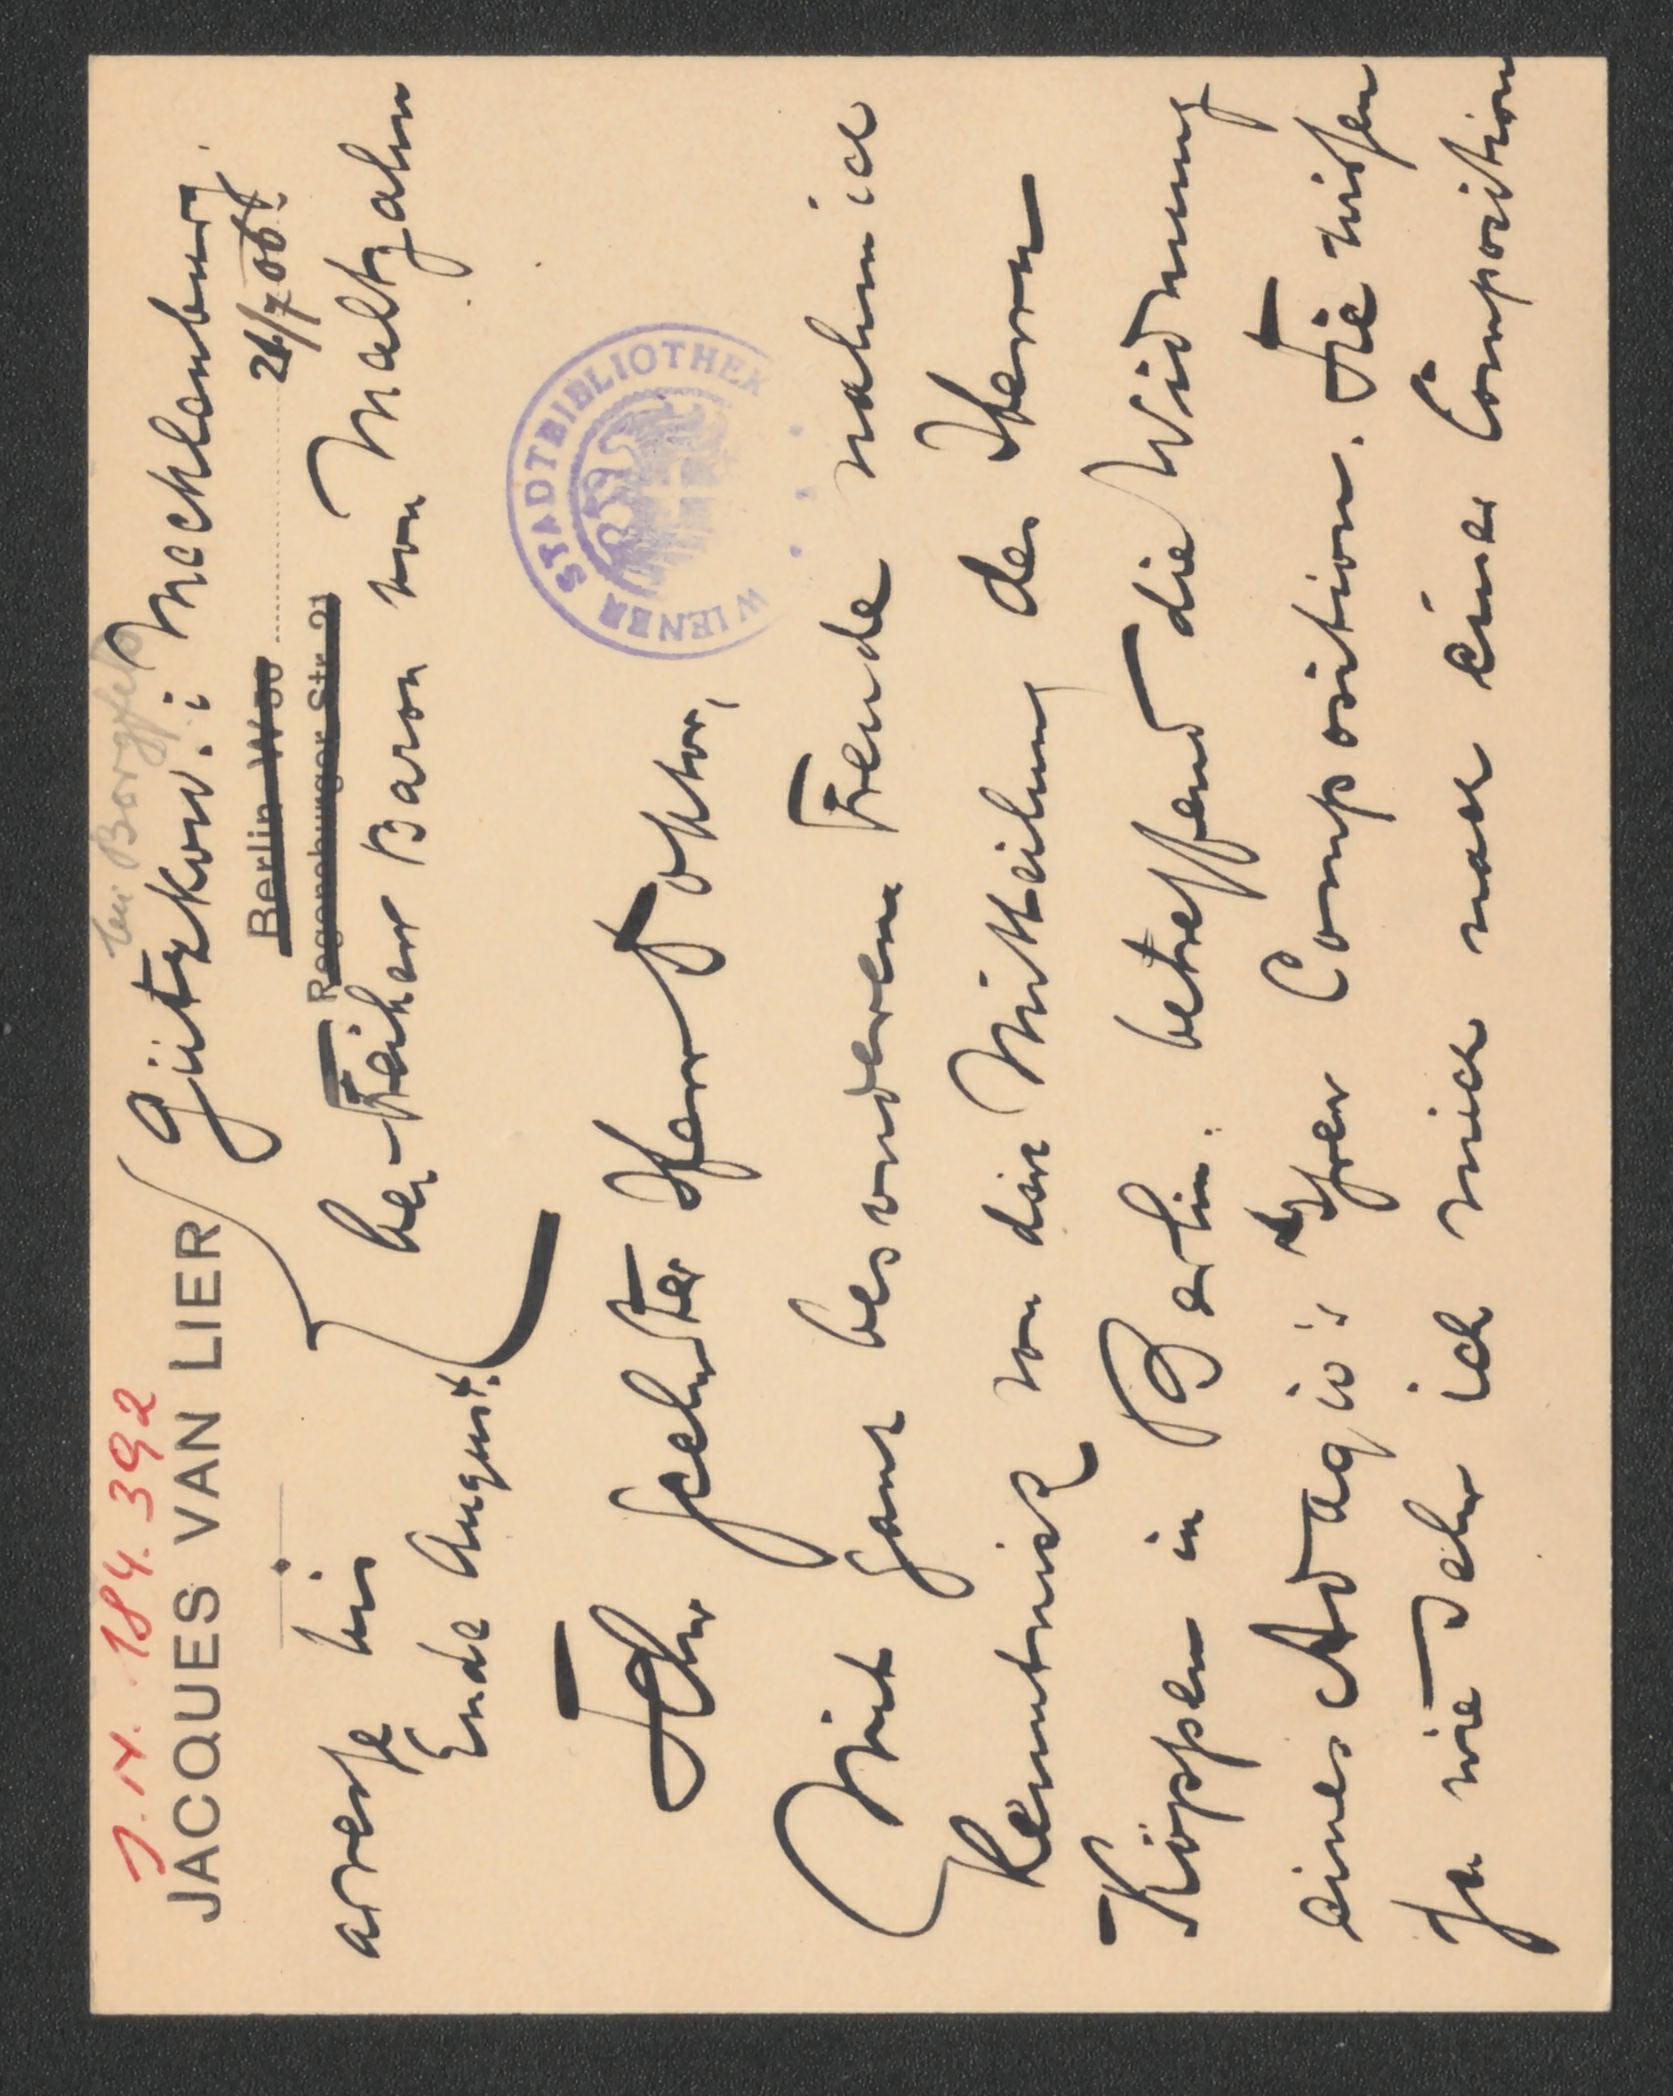 J.N. 184.392
JACQUES VAN LIER
bei Borgfeld
Gützkow. i Mecklenburg.
Berlin W 50
26/7 06.
Regensburger Str. 21
adresse bis
Ende August.
bei Freiherr Baron von Maltzahn
WIENER STADTBIBLIOTHEK
Sehr geehrter Herr Doktor,
Mit ganz besonderem Freude nahm ich
Kenntniss von die Mittheilung des Herrn
Köppen in Berlin. betreffend die Widmung
eines Adagio's Ihrer Composition. Sie wissen
ja wie sehr ich mich nach einer Composition